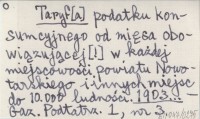 Taryf[a] podatku kon-
sumcyjnego od mięsa obo-
wiązującej[!] w każdej
miejscowości powiatu Nowo-
tarskiego i innych miejsc
do 10.000 ludności. 1903.-
Gaz. Podtatrz. 1, nr 3.